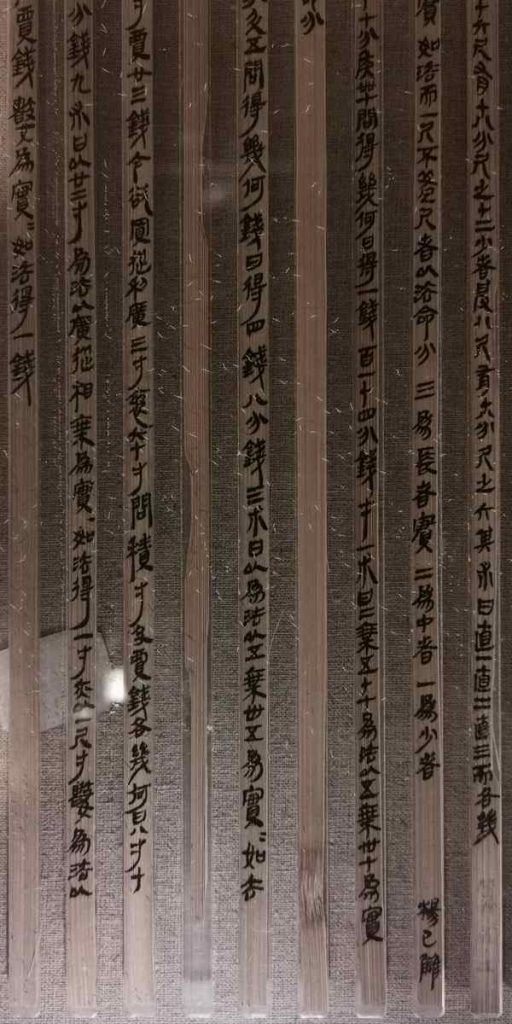 十六尺有十八分尺之十二少者受八尺有十八分尺之六其朮曰直一直二直三而各幾
實如法而一尺不盈尺者以法命分三爲長者實二爲中者一爲少者 楊已讎
十分問得幾何曰得一錢百一十四分錢朮曰三乘五十爲法以五乘爲實
分
五問得幾何錢曰得四錢八分錢三朮曰以爲法以五乘卅五爲實〻如法
寸賈廿三錢今欲買從利廣三寸袤六十寸問積寸及賈錢各幾何曰八寸十
分錢九朮曰以廿二寸爲法以廣從相乘爲實〻如法得一寸亦以一尺寸數爲法以
賈錢數乘爲實〻如法得一錢